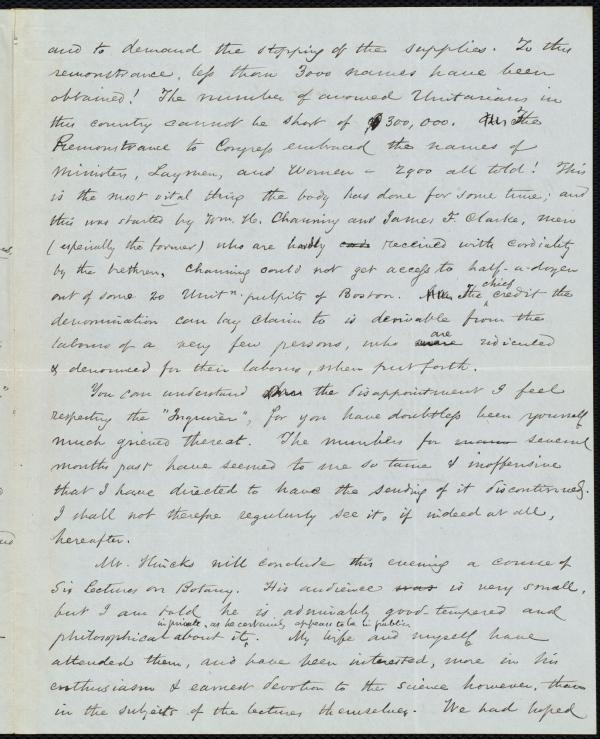 and to demand the stopping of the supplies. To this
remonstrance, less than 3000 names have been
obtained! The number of avowed Unitarians in
this country cannot be short of 300,000. The
Remonstrance to Congress embraced the names of
Ministers, Laymen, and Women – 2900 all told! This
is the most vital thing the body has done for some time; and
this was started by Wm. H. Channing and James F. Clarke, men
(especially the former) who are hardly received with cordiality
by the brethren. Channing could not get access to half-a-dozen
out of some 20 Unitn. pulpits of Boston. The chief credit the
denomination can lay claim to is derivable from the
labours of a very few persons, who are ridiculed
& denounced for their labours, when put forth.
You can understand the disappointment I feel
respecting the "Inquirer", for you have doubtless been yourself
much grieved thereat. The numbers for several
months past have seemed to me so tame & inoffensive
that I have directed to have the sending of it discontinued.
I shall not therefore regularly see it, if indeed at all,
hereafter.
Mr. Hincks will conclude this evening a course of
Six Lectures on Botany. His audience is very small,
but I am told he is admirably good-tempered and
philosophical about it in private, as he certainly appears to be in public. My wife and myself have
attended them, and have been interested, more in his
enthusiasm & earnest devotion to the science however, than
in the subjects of the lectures themselves. We had hoped